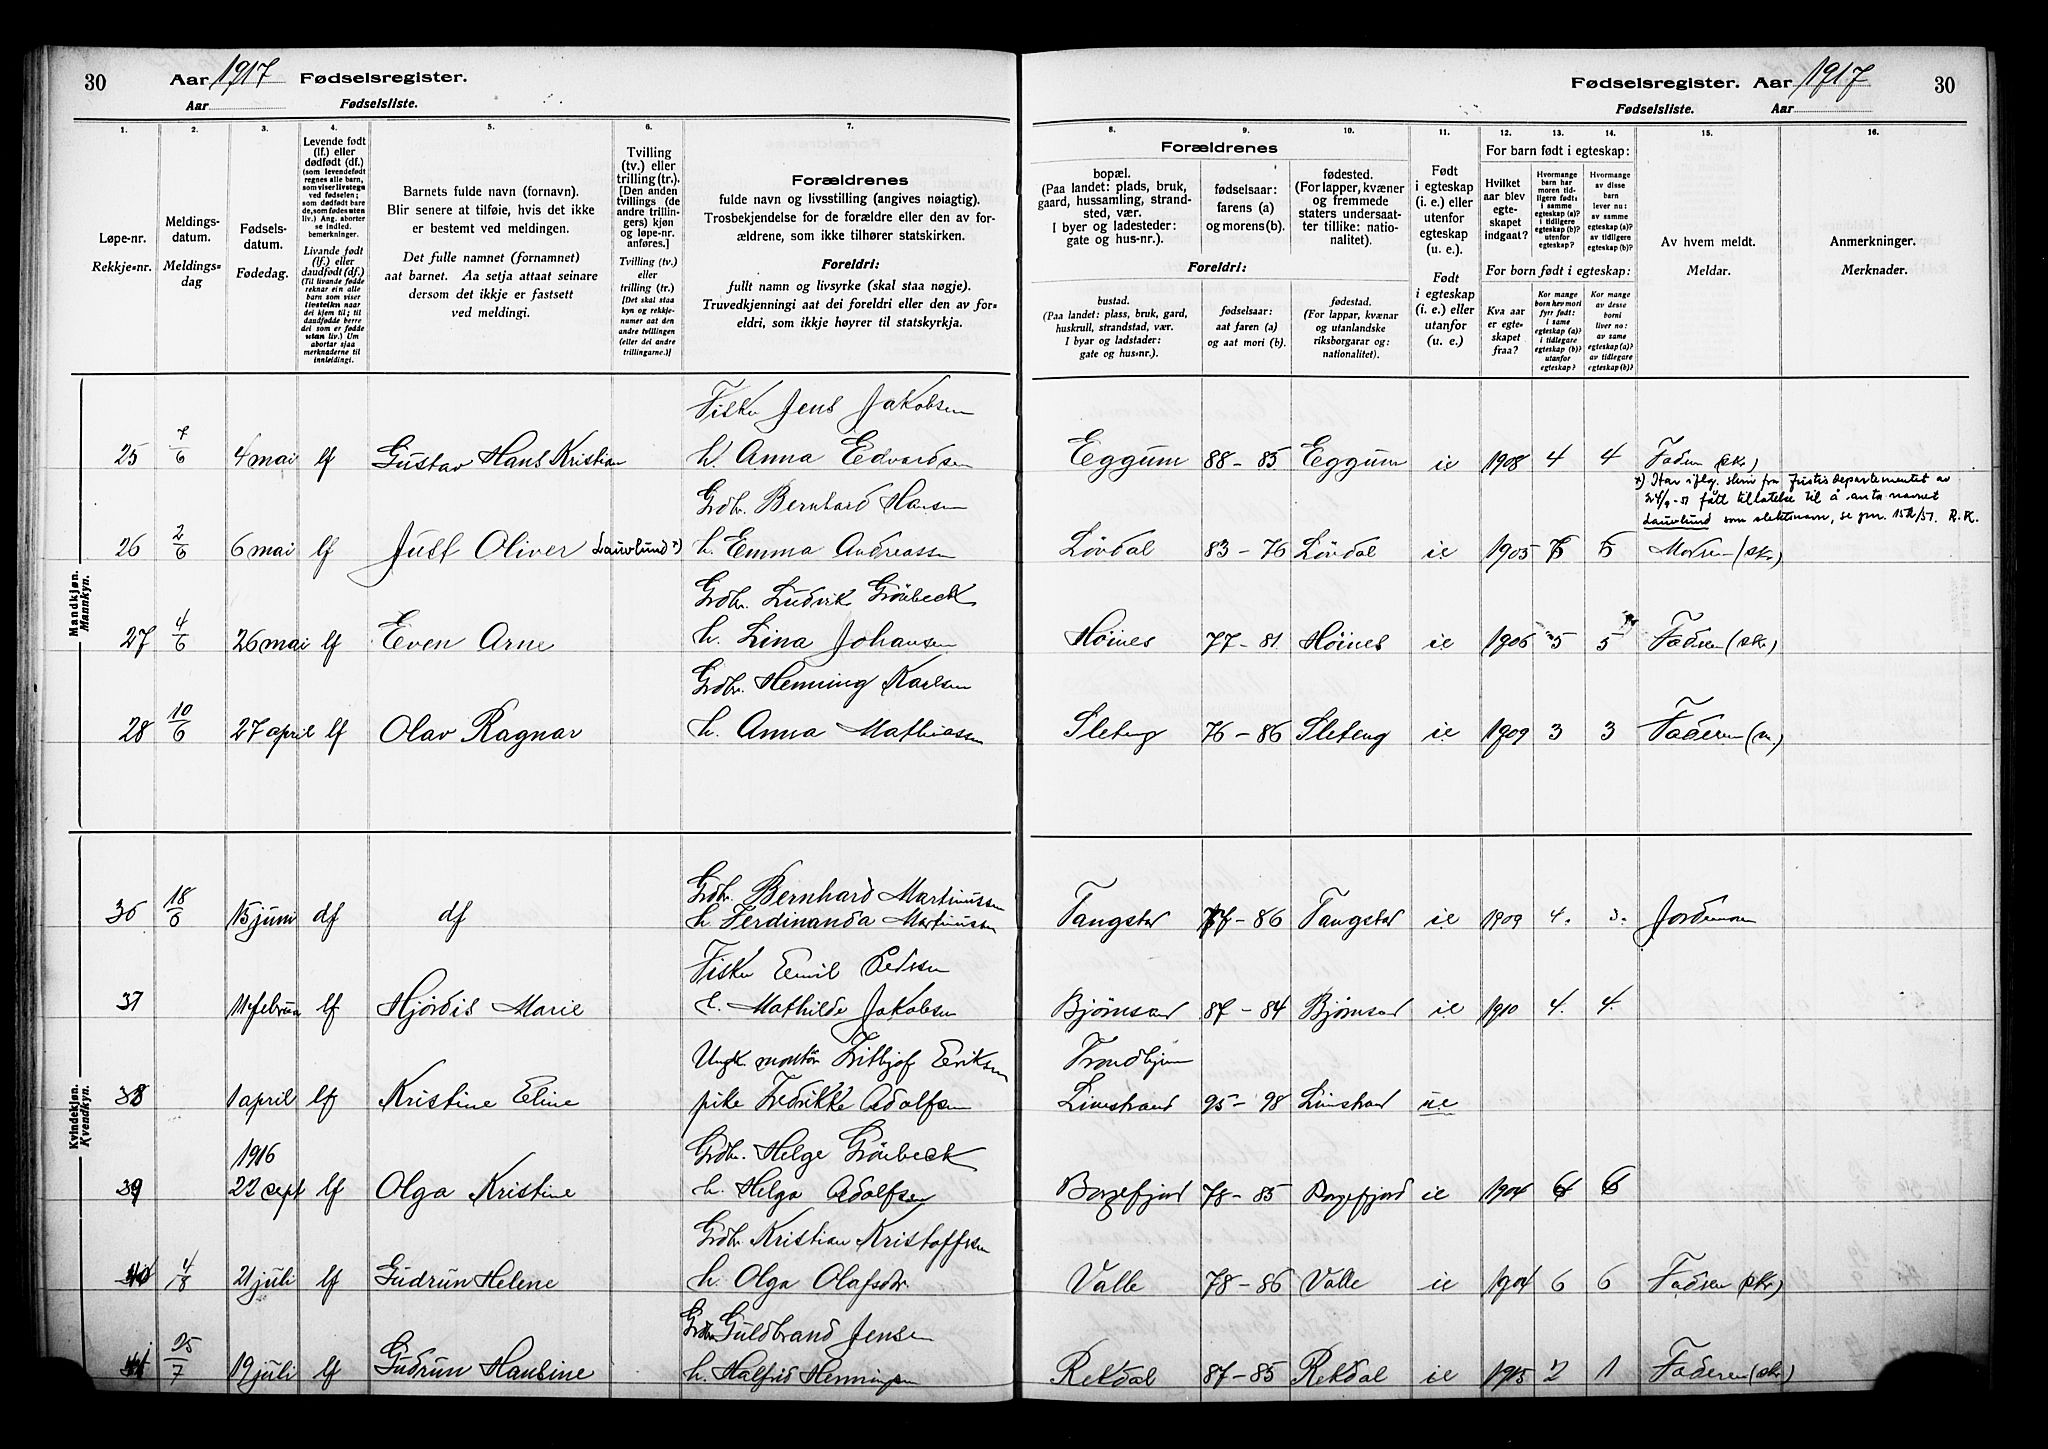 30 Aar 1917 Fødselsregister.
Aar Fødselsliste.
1. 2. 3. 4. 5. 6. 7.
Løpe-nr.
Rekkje-nr.
Meldings-
datum.
Meldings-
dag
Fødsels-
datum.
Fødedag.
Levende født
(lf.) eller
dødfødt (df.)
(som levendefødt
regnes alle barn,
som viser livstegn
ved fødselen;
som dødfødt bare
de, som fødes uten
liv.) Ang. aborter
se indled.
bemerkninger.
Livande født
(lf.) eller
daudfødt (df.)
(Til livande fødde
reknar ein alle
born som viser
livsteikn naar
dei kjem til; til
daudfødde berre
dei som er fødde
utan liv.) Um
abortar sjaa
merknaderne til
innleidingi.
Barnets fulde navn (fornavn).
Blir senere at tilføie, hvis det ikke
er bestemt ved meldingen.
Det fulle namnet (fornamnet)
aat barnet. Aa setja attaat seinare
dersom det ikkje er fastsett
ved meldingi.
Tvilling
(tv.) eller
trilling (tr.).
[Den anden
tvillings (de
andre trillin-
gers) kjøn
og løpe-nr.
anføres.]
Tvilling (tv.)
eller
trilling (tr.)
[Det skal staa
kyn og rekkje-
numer aat den
andre tvillingen
(eller dei andre
trillingarne.)]
Forældrenes
fulde navn og livsstilling (angives nøiagtig).
Trosbekjendelse for de forældre eller den av for-
ældrene, som ikke tilhører statskirken.
Foreldri:
fullt namn og livsyrke (skal staa nøgje).
Truvedkjenningi aat dei foreldri eller den av for-
eldri, som ikkje høyrer til statskyrkja.
Mandkjøn.
Mannkyn.
Fisker Jens Jakobsen
25 7/6 4 mai lf Gustav Hans Kristian h. Anna Edvardsen
Grdbr. Bernhard Hansen
26 2/6 6 mai lf Just Oliver Lauvlund x) h. Emma Andreassen
Grdbr. Ludvik Grönbeck
27 4/6 26 mai lf Even Arne h. Lina Johansen
Grdbr. Henning Karlsen
28 10/6 27 april lf Olav Ragnar h. Anna Mathiassen
Kvindekjøn.
Kvendkyn.
Grdbr. Bernhard Martinussen
36 18/6 15 juni df df h. Ferdinanda Martinussen
Fisker Emil
37 11 februar lf Hjördis Marie h. Mathilde Jakobsen
Ungk. montör Frithjof Eriksen
38 1 april lf Kristine Eline pike Fredrikke Adolfsen
1916 Grdbr. Helge Grönbeck
39 22 sept lf Olga Kristine h. Helga Adolfsen
Grdbr. Kristian Kristoffersen
40 4/8 21 juli lf Gudrun Helene h. Olga Olafsdr.
Grdbr. Guldbrand Jensen
41 25/7 19 juli lf Gudrun Hansine h. Halfrid Henningsen
Fødselsregister. Aar 1917 30
Fødselsliste. Aar
8. 9. 10. 11. 12. 13. 14. 15. 16.
Forældrenes
bopæl.
(Paa landet: plads, bruk,
gaard, hussamling, strand-
sted, vær.
I byer og ladesteder:
gate og hus-nr.).
fødselsaar:
farens (a)
og morens (b).
fødested.
(For lapper, kvæner
og fremmede
staters undersaat-
ter tillike: natio-
nalitet).
Foreldri:
bustad.
(Paa landet: plass, bruk, gard,
huskrull, strandstad, vær.
I byar og ladstader:
gate og hus-nr.).
fødselsaar:
aat faren (a)
og aat mori (b).
fødestad.
(For lappar, kvænar
og utanlandske
riksborgarar og:
nationalitet).
Født
i egteskap
(i. e.) eller
utenfor
egteskap
(u. e.).
Født
i egteskap
(i. e.) eller
utanfor
(u. e.).
For barn født i egteskap:
Hvilket
aar blev
egte-
skapet
indgaat?
Hvormange
barn har
moren tid-
ligere født:
i samme
egteskap (a)?
i tidligere
egteskap (b)?
utenfor
egteskap?
Hvormange
av disse
barn
lever nu:
av samme
egteskap (a)?
av tidligere
egteskap (b)?
For born født i egteskap:
Kva aar
er egte-
skapet
fraa?
Kor mange
born hev mori
fyrr født:
i same
egteskap (a)?
i tidlegare
egteskap (b)?
utanfor
egteskap?
Kor mange
av desse
borni
liver no:
av same
egteskap (a)?
av tidlegare
egteskap (b)?
Av hvem meldt.
Meldar.
Anmerkninger.
Merknader.
Eggum 88 - 85 Eggum ie 1908 4 4 Faderen (skr)
x) Har iflg. skriv fra Justisdepartementet av
24/9-51 fått tillatelse til å anta navnet
Lauvlund som slektsnavn, se jnr. 152/51. R.K.
Lövdal 83 - 76 Lövdal ie 1905 5 5 Moderen (skr)
Höines 77 - 81 Höines ie 1906 5 5 Faderen (skr)
Sleteng 76 - 86 Sleteng ie 1909 3 3 Faderen (m)
Tangstad 77 - 86 Tangstad ie 1909 4. 3. Jordemor
Bjørnsand 87 - 84 Bjørnsand ie 1910 4. 4.
Trondhjem
Limstrand 95 - 98 Limstrand ue
Borgefjord 78 - 85 Borgefjord ie 1904 6 6
Valle 78 - 86 Valle ie 1904 6 6 Faderen (skr)
Rekdal 87 - 85 Rekdal ie 1915 2 1 Faderen (skr)